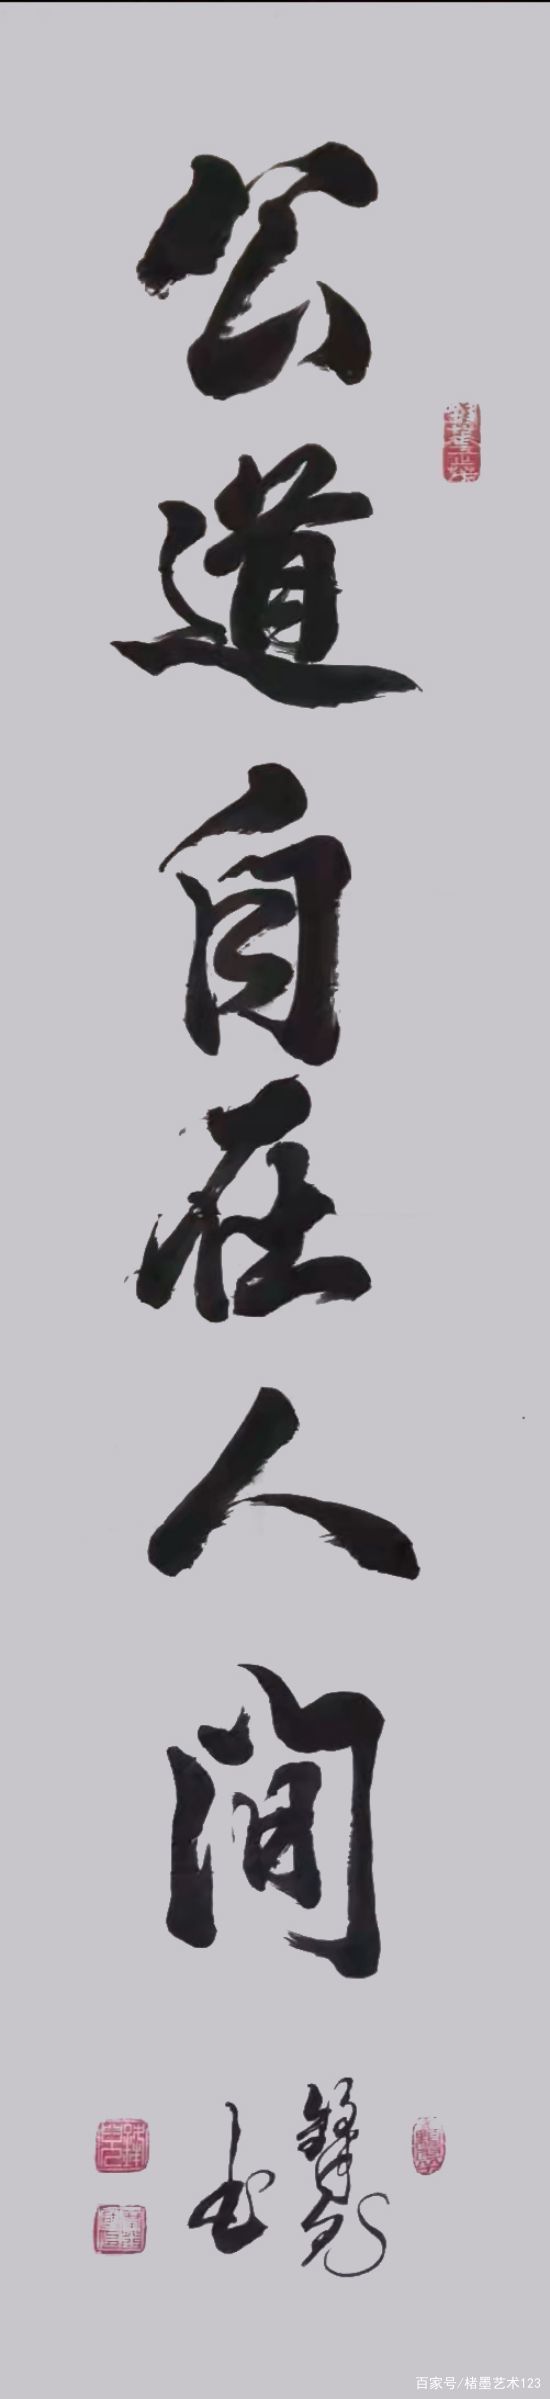 公道自在人间
书
百家号/楮墨艺术123